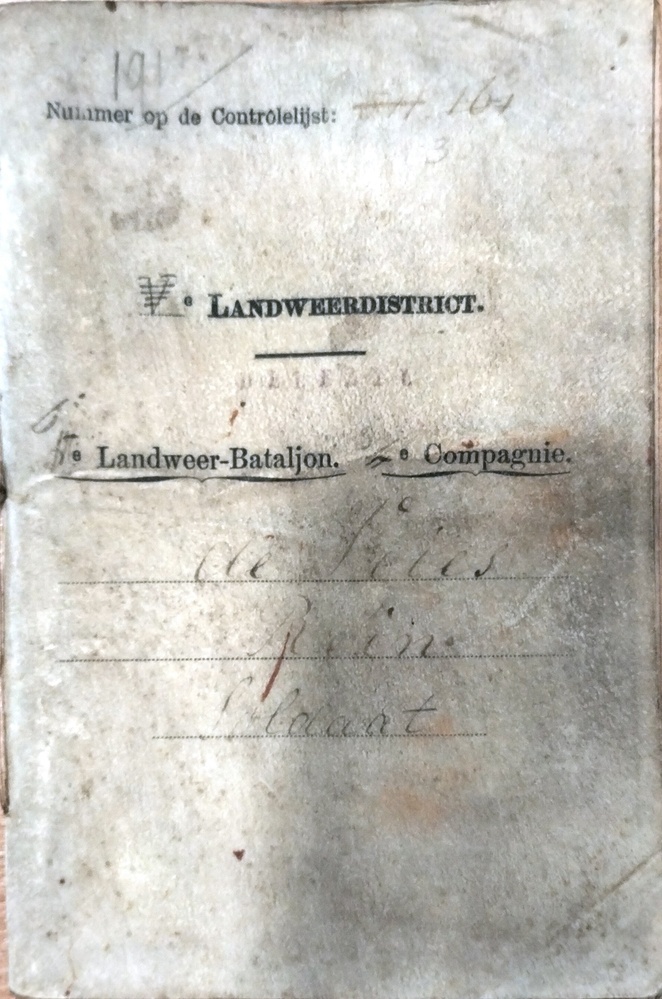 191
Nummer op de Contrôlelijst: 161
3
Ve LANDWEERDISTRICT.
6
5e Landweer-Bataljon. e Compagnie.
de
Rein
Soldaat